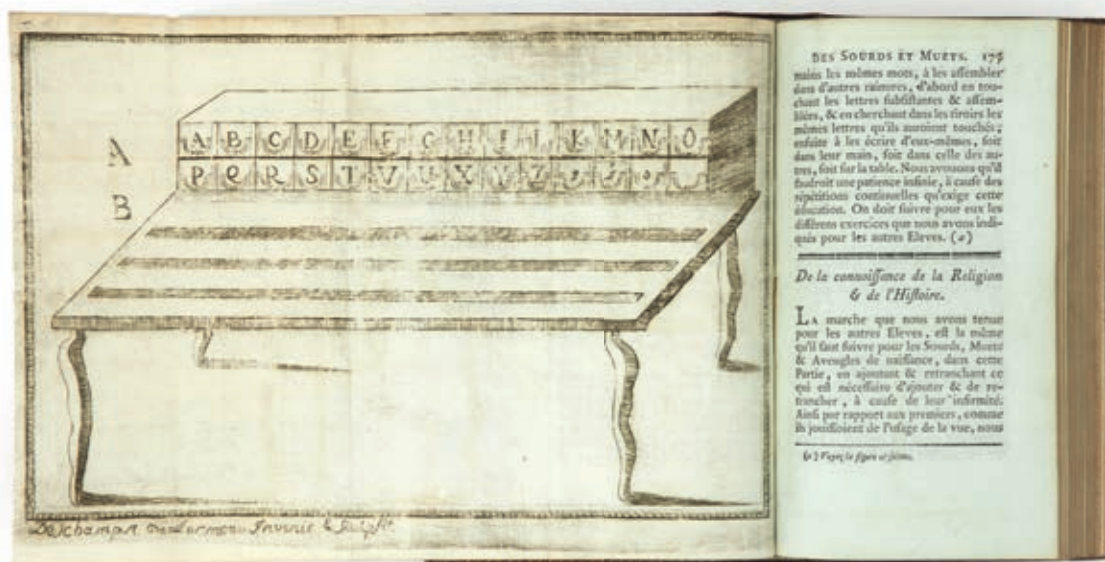 A
B
A B C D E F G H I J K M N O
P Q R S T V U X Y Z
Deschamps Invenit & Sculpsit.
DES SOURDS ET MUETS. 175
mains les mêmes mots, à les assembler
dans d'autres rainures, d'abord en tou-
chant les lettres subsistantes & assem-
blées, & en cherchant dans les tiroirs les
mêmes lettres qu'ils auroient touchés;
ensuite à les écrire d'eux-mêmes, soit
dans leur main, soit dans celle des au-
tres, soit sur la table. Nous avouons qu'il
faudroit une patience infinie, à cause des
répétitions continuelles qu'exige cette
éducation. On doit suivre pour eux les
différens exercices que nous avons indi-
qués pour les autres Eleves. (a)
De la connoissance de la Religion
& de l'Histoire.
LA marche que nous avons tenue
pour les autres Eleves, est la même
qu'il faut suivre pour les Sourds, Muets
& Aveugles de naissance, dans cette
Partie, en ajoutant & retranchant ce
qui est nécessaire d'ajouter & de re-
trancher, à cause de leur infirmité.
Ainsi par rapport aux premiers, comme
ils jouissoient de l'usage de la vue, nous
(a) Voyez la figure ci-jointe.